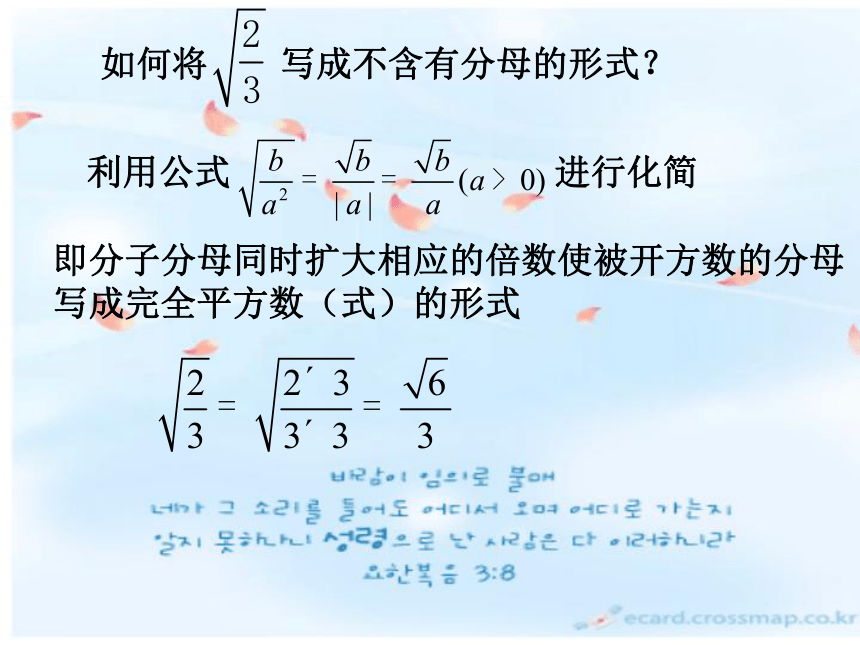 如何将 √(2/3) 写成不含有分母的形式？
利用公式 √(b/a²) = √b/|a| = √b/a (a > 0) 进行化简
即分子分母同时扩大相应的倍数使被开方数的分母
写成完全平方数（式）的形式
√(2/3) = √(2′ 3/3′ 3) = √6/3
바람이 임의로 불매
네가 그 소리를 들어도 어디서 오며 어디로 가는지
알지 못하나니 성령으로 난 사람은 다 이러하니라
요한복음 3:8
ecard.crossmap.co.kr